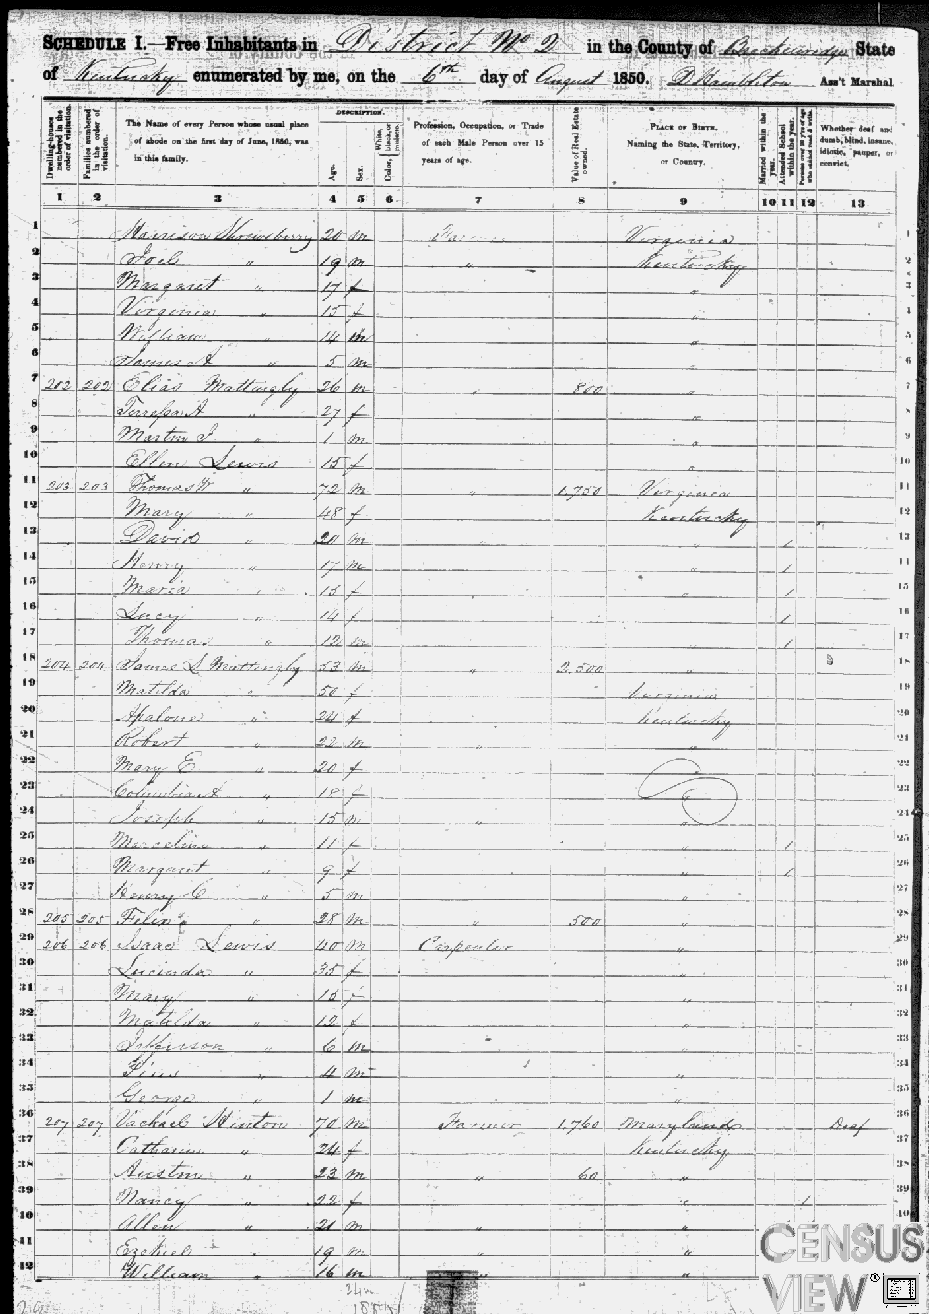 SCHEDULE I.—Free Inhabitants in District No 2 in the County of Breckenridge State
of Kentucky enumerated by me, on the 6th day of August 1850. Ass't Marshal
Dwelling-houses numbered in the order of visitation.
Families numbered in the order of visitation.
The Name of every Person whose usual place of abode on the first day of June, 1850, was in this family.
DESCRIPTION.
Age.
Sex.
Color, White, black, or mulatto.
Profession, Occupation, or Trade of each Male Person over 15 years of age.
Value of Real Estate owned.
PLACE OF BIRTH. Naming the State, Territory, or Country.
Married within the year.
Attended School within the year.
Persons over 20 y'rs of age who cannot read & write.
Whether deaf and dumb, blind, insane, idiotic, pauper, or convict.
1 2 3 4 5 6 7 8 9 10 11 12 13
1 Harrison Shrewsberry 20 m Farmer Virginia 1
2 Joel " 19 m " Kentucky 2
3 Margaret " 17 f " 3
4 Virginia " 15 f " 4
5 William " 14 m " 5
6 James A " 5 m " 6
7 202 202 Elias Mattingly 26 m " 800 " 7
8 A " 27 f " 8
9 Martin J " 1 m " 9
10 Ellen Lewis 15 f " 10
11 203 203 Thomas W " 72 m " 1,750 Virginia 11
12 Mary " 48 f Kentucky 12
13 David " 20 m " " 1 13
14 Henry " 17 m " 1 14
15 Maria " 15 f " 1 15
16 Lucy " 14 f " 1 16
17 Thomas " 12 m " 1 17
18 204 204 James S Mattingly 53 m " 2,500 " 18
19 Matilda " 50 f Virginia 19
20 " 24 f Kentucky 20
21 Robert " 22 m " " 21
22 Mary E " 20 f 22
23 Columbia A " 18 f " 23
24 Joseph " 15 m " " 24
25 Marcelin " 11 f " 1 25
26 Margaret " 9 f " 1 26
27 Henry C " 5 m " 27
28 205 205 " 28 m " 500 " 28
29 206 206 Isaac Lewis 40 m Carpenter " 29
30 Lucinda " 35 f " 30
31 Mary " 15 f " 31
32 Matilda " 12 f " 32
33 " 6 m " 33
34 " 4 m " 34
35 George " 1 m " 35
36 207 207 Vachael Hinton 70 m Farmer 1,760 Maryland Deaf 36
37 Catharine " 24 f Kentucky 37
38 Austin " 23 m " 60 " 38
39 Nancy " 22 f " 1 39
40 Allen " 21 m " " 40
41 Ezekiel " 19 m " " 41
42 William " 16 m " " 42
CENSUS
VIEW®